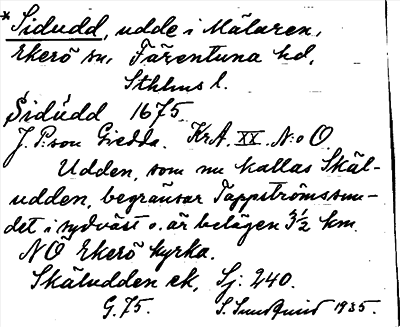 *Sidudd, udde i Mälaren,
Ekerö sn, Färentuna hd,
Sthlms l.
Sidudd 1675
J. P:son Giedda. KrA. XX. N:o O.
Udden, som nu kallas Skäl-
udden, begränsar Tappströmssun-
det i sydväst o. är belägen 3½ km.
NÖ Ekerö kyrka.
Skäludden ek, Sj: 240.
G. 75. S. Sundquist 1935.